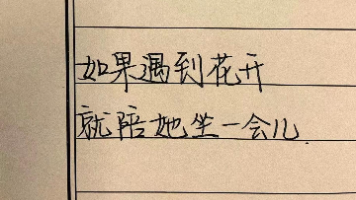 如果遇到花开
就陪她坐一会儿